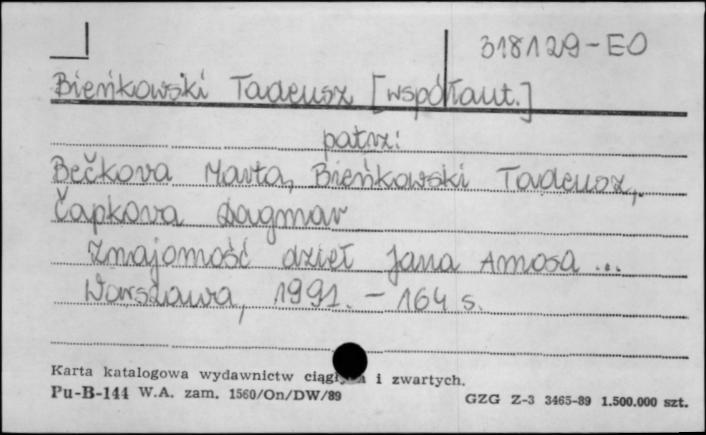 318129-EO
Bieńkowski Tadeusz [współaut.]
patrz:
Bečkova Marta, Bieńkowski Tadeusz,
Čapkova Dagmar
Znajomość dzieł Jana Amosa ...
Warszawa, 1991. - 164 s.
Karta katalogowa wydawnictw ciągłych i zwartych.
Pu-B-144 W.A. zam. 1560/On/DW/89
GZG Z-3 3465-89 1.500.000 szt.